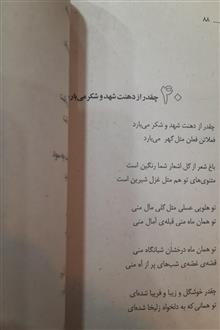 ۸۸
۴۰ چقدر از دهنت شهد و شکر می‌بارد
چقدر از دهنت شهد و شکر می‌بارد
فعلاتن فعلن مثل گهر می‌بارد
باغ شعر از گل اشعار شما رنگین است
مثنوی‌های تو هم مثل غزل شیرین است
تو هلویی عسلی مثل گلی مال منی
تو همان ماه منی قبله‌ی آمال منی
تو همان ماه درخشان شبانگاه منی
قصه‌ی غصه‌ی شب‌های پر از آه منی
چقدر خوشگل و زیبا و فریبا شده‌ای
تو همانی که به دلخواه زلیخا شده‌ای